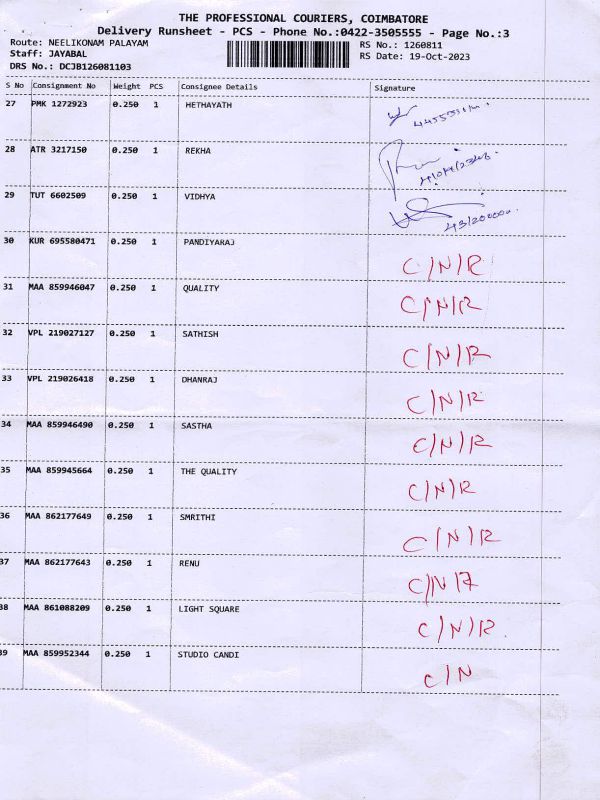 THE PROFESSIONAL COURIERS, COIMBATORE
Delivery Runsheet - PCS - Phone No.:0422-3505555 - Page No.:3
Route: NEELIKONAM PALAYAM RS No.: 1260811
Staff: JAYABAL RS Date: 19-Oct-2023
DRS No.: DCJB126081103
S No Consignment No Weight PCS Consignee Details Signature
27 PMK 1272923 0.250 1 HETHAYATH
28 ATR 3217150 0.250 1 REKHA
29 TUT 6602509 0.250 1 VIDHYA
30 KUR 695580471 0.250 1 PANDIYARAJ C/N/R
31 MAA 859946047 0.250 1 QUALITY C/N/R
32 VPL 219027127 0.250 1 SATHISH C/N/R
33 VPL 219026418 0.250 1 DHANRAJ C/N/R
34 MAA 859946490 0.250 1 SASTHA C/N/R
35 MAA 859945664 0.250 1 THE QUALITY C/N/R
36 MAA 862177649 0.250 1 SMRITHI C/N/R
37 MAA 862177643 0.250 1 RENU C/N/7
38 MAA 861088209 0.250 1 LIGHT SQUARE C/N/R.
39 MAA 859952344 0.250 1 STUDIO CANDI C/N